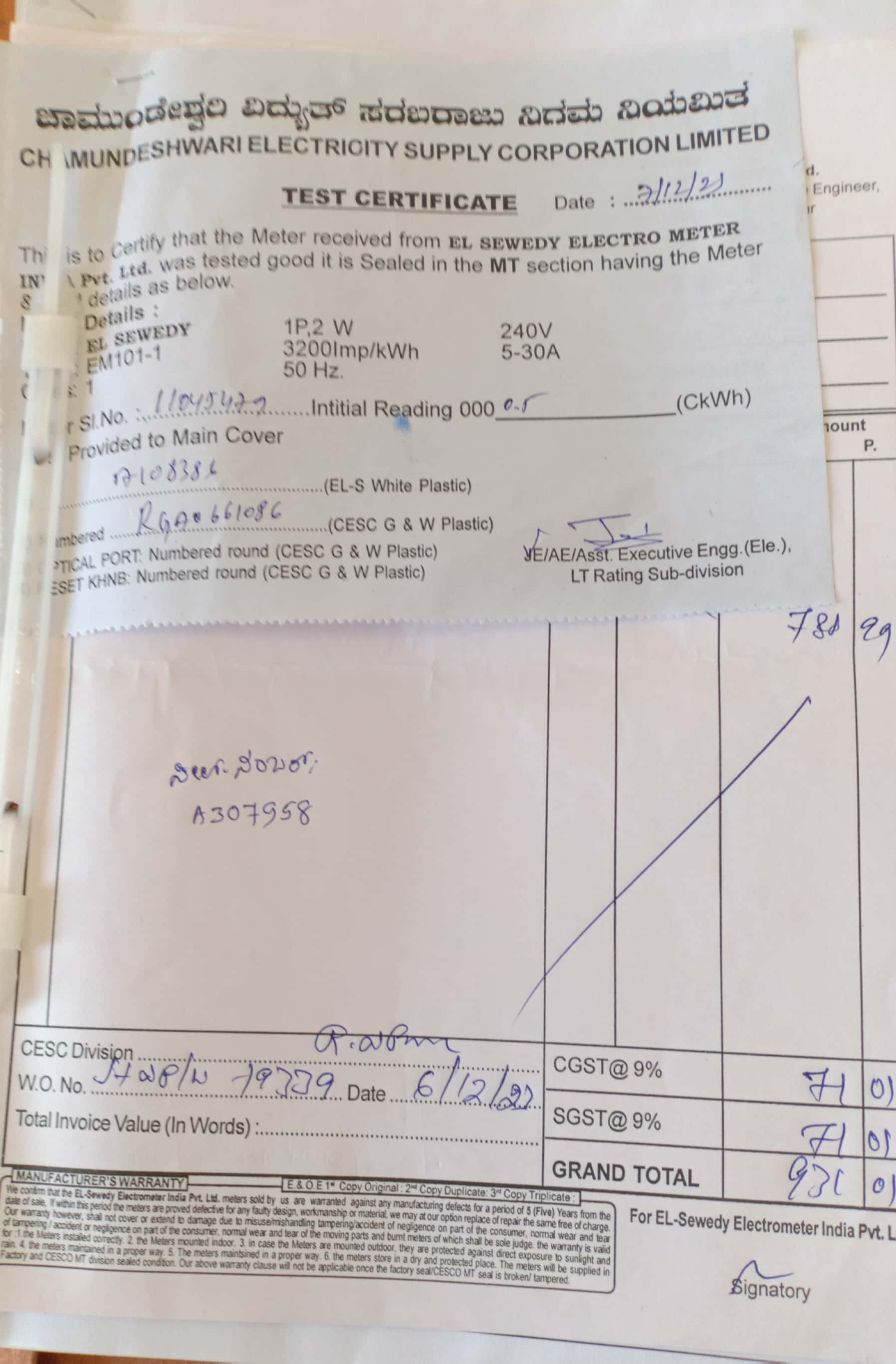 ಚಾಮುಂಡೇಶ್ವರಿ ವಿದ್ಯುತ್ ಸರಬರಾಜು ನಿಗಮ ನಿಯಮಿತ
CH AMUNDESHWARI ELECTRICITY SUPPLY CORPORATION LIMITED
TEST CERTIFICATE Date : 7/12/21
is to Certify that the Meter received from EL SEWEDY ELECTRO METER
Pvt. Ltd. was tested good it is Sealed in the MT section having the Meter
& details as below.
Details :
EL SEWEDY 1P,2 W 240V
EM101-1 3200Imp/kWh 5-30A
1 50 Hz.
Sl.No. : 11045479 Intitial Reading 000 0.5 (CkWh)
Provided to Main Cover
A108386 (EL-S White Plastic)
RGA0661086 (CESC G & W Plastic)
PORT: Numbered round (CESC G & W Plastic)
KHNB: Numbered round (CESC G & W Plastic)
JE/AE/Asst. Executive Engg.(Ele.),
LT Rating Sub-division
d.
Engineer,
P.
ಸೀಲ್ ನಂಬರ್:
A307958
CESC Division
W.O. No. 79339 Date 6/12/21
Total Invoice Value (In Words) :
CGST@ 9% 71 01
SGST@ 9% 71 01
GRAND TOTAL 931 01
MANUFACTURER'S WARRANTY E & O.E 1st Copy Original : 2nd Copy Duplicate: 3rd Copy Triplicate :
We confirm that the EL-Sewedy Electrometer India Pvt. Ltd. meters sold by us are warranted against any manufacturing defects for a period of 5 (Five) Years from the
date of sale. If within this period the meters are proved defective for any faulty design, workmanship or material, we may at our option replace of repair the same free of charge.
Our warranty however, shall not cover or extend to damage due to misuse/mishandling tampering/accident of negligence on part of the consumer, normal wear and tear
of tampering / accident or negligence on part of the consumer, normal wear and tear of the moving parts and burnt meters of which shall be sole judge. the warranty is valid
for :1 the Meters installed correctly. 2. the Meters mounted indoor. 3. in case the Meters are mounted outdoor, they are protected against direct exposure to sunlight and
rain. 4. the meters maintained in a proper way. 5. The meters maintsined in a proper way. 6. the meters store in a dry and protected place. The meters will be supplied in
Factory and CESCO MT division sealed condition. Our above warranty clause will not be applicable once the factory seal/CESCO MT seal is broken/ tampered.
For EL-Sewedy Electrometer India Pvt. L
Signatory